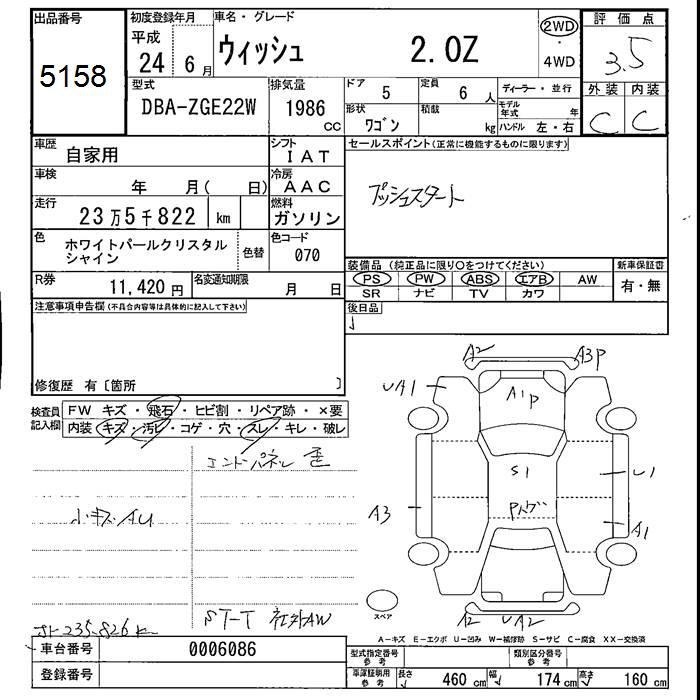 出品番号
5158
初度登録年月
平成
24 6月
車名・グレード
ウィッシュ 2.0Z
2WD
・
4WD
評価点
3.5
外装 内装
C C
型式
DBA-ZGE22W
排気量
1986
CC
ドア 5
定員 6 人
形状 ワゴン
積載 kg
ディーラー・並行
モデル年式 年
ハンドル 左・右
車歴 自家用
シフト IAT
車検 年 月( 日)
冷房 AAC
走行 23万5千822 km
燃料 ガソリン
色 ホワイトパールクリスタルシャイン
色替
色コード 070
R券 11,420円
名変通知期限 月 日
セールスポイント(正常に機能するものに限ります)
プッシュスタート
装備品 (純正品に限り〇をつけてください)
PS PW ABS エアB AW
SR ナビ TV カワ
新車保証書
有・無
後日品
注意事項申告欄(不具合内容等は具体的に記入して下さい)
修復歴 有〔箇所 〕
検査員記入欄
FW キズ・飛石・ヒビ割・リペア跡・×要
内装 キズ・汚レ・コゲ・穴・スレ・キレ・破レ
エンドパネル 歪
小キズ AU
ST-T 社外AW
235,826 k
A2 A3P
UA1 A1P
S1 U1
A3 A1
A2 UA2
スペア
A-キズ E-エクボ U-凹み W-補修跡 S-サビ C-腐食 XX-交換済
車台番号 0006086
登録番号
型式指定番号 参考
類別区分番号 参考
車庫証明用 参考
長さ 460 cm 幅 174 cm 高さ 160 cm